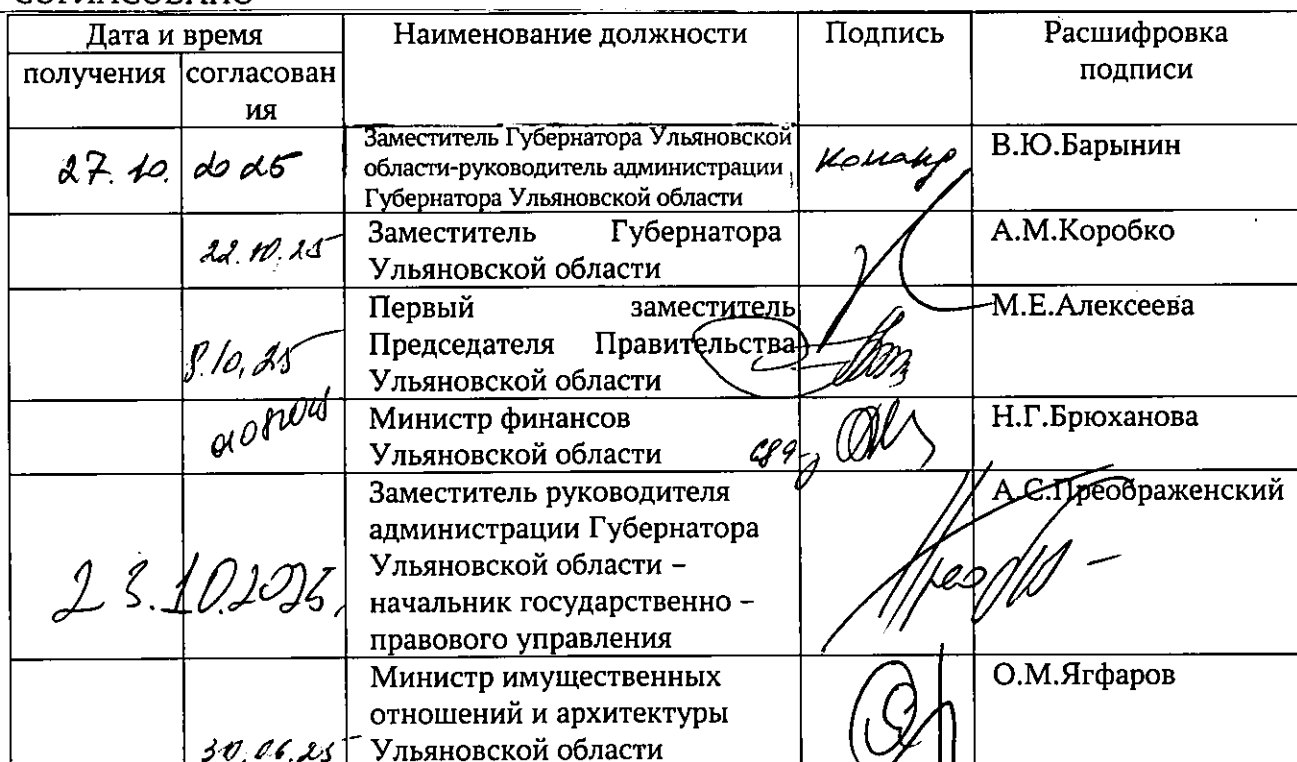 СОГЛАСОВАНО
Дата и время Наименование должности Подпись Расшифровка подписи
получения согласован
ия
Заместитель Губернатора Ульяновской
области-руководитель администрации
Губернатора Ульяновской области
27.10. 2025
В.Ю.Барынин
Заместитель Губернатора
Ульяновской области
22.10.25
А.М.Коробко
Первый заместитель
Председателя Правительства
Ульяновской области
8.10,25
М.Е.Алексеева
Министр финансов
Ульяновской области
Н.Г.Брюханова
Заместитель руководителя
администрации Губернатора
Ульяновской области –
начальник государственно –
правового управления
23.10.2025,
А.С.Преображенский
Министр имущественных
отношений и архитектуры
Ульяновской области
30.06.25
О.М.Ягфаров